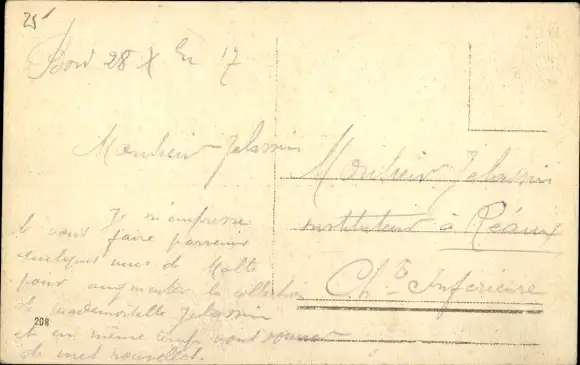 25
28 X bre 17
Monsieur Jelamin
Je m'empresse
de vous faire parvenir
quelques vues de Malte
pour augmenter la collection
de mademoiselle Jelamin
et en même temps vous donner
de mes nouvelles.
208
Monsieur Jelamin
instituteur à Réaux
Ch.te Inférieure